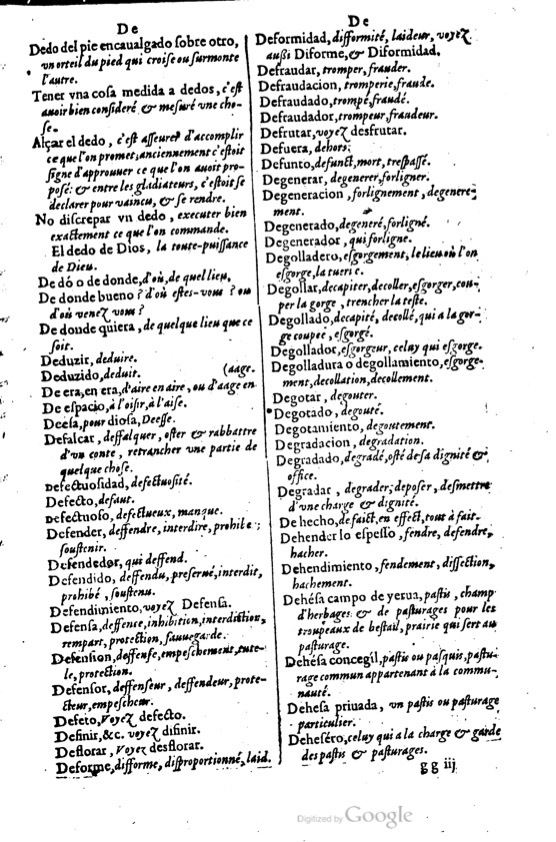 De
Dedo del pie encaualgado sobre otro,
vn orteil du pied qui croise ou surmonte
l'autre.
Tener vna cosa medida a dedos, c'est
auoir bien consideré & mesuré vne cho-
se.
Alçar el dedo, c'est asseurer d'accomplir
ce que l'on promet; anciennement c'estoit
signe d'approuuer ce que l'on auoit pro-
posé: & entre les gladiateurs, c'estoit se
declarer pour vaincu, & se rendre.
No discrepar vn dedo, executer bien
exactement ce que l'on commande.
El dedo de Dios, la toute-puissance
de Dieu.
De dó o de donde, d'où, de quel lieu,
De donde bueno? d'où estes-vous? ou
d'où venez vous?
De donde quiera, de quelque lieu que ce
soit.
Deduzir, deduire.
Deduzido, deduit. (aage.
De era, en era, d'aire en aire, ou d'aage en
De espacio, à l'oisir, à l'aise.
Deesa, pour diosa, Deesse.
Defalcar, deffalquer, oster & rabbattre
d'vn conte, retrancher une partie de
quelque chose.
Defectuosidad, defectuosité.
Defecto, defaut.
Defectuoso, defectueux, manque.
Defender, deffendre, interdire, prohiber;
soustenir.
Defendedor, qui deffend.
Defendido, deffendu, preserué, interdit,
prohibé, soustenu.
Defendimiento, voyez Defensa.
Defensa, deffense, inhibition, interdiction,
rempart, protection, sauuegarde.
Defension, deffense, empeschement, tute-
le, protection.
Defensor, deffenseur, deffendeur, prote-
cteur, empescheur.
Defeto, voyez defecto.
Definir, &c. voyez difinir.
Deflorar, voyez desflorar.
Deforme, difforme, disproportionné, laid.
De
Deformidad, difformité, laideur, voyez
aussi Diforme, & Diformidad.
Defraudar, tromper, frauder.
Defraudacion, tromperie, fraude.
Defraudado, trompé, fraudé.
Defraudador, trompeur, fraudeur.
Defrutar, voyez desfrutar.
Defuera, dehors.
Defunto, defunct, mort, trespassé.
Degenerar, degenerer, forligner.
Degeneracion, forlignement, degenere-
ment.
Degenerado, degeneré, forligné.
Degenerador, qui forligne.
Degolladero, esgorgement, le lieu où l'on
esgorge, la tuerie.
Degollar, decapiter, decoller, esgorger, cou-
per la gorge, trencher la teste.
Degollado, decapité, decollé, qui a la gor-
ge coupee, esgorgé.
Degollador, esgorgeur, celay qui esgorge.
Degolladura o degollamiento, esgorge-
ment, decollation, decollement.
Degotar, degouter.
Degotado, degouté.
Degotamiento, degoutement.
Degradacion, degradation.
Degradado, degradé, osté de sa dignité &
office.
Degradar, degrader, deposer, desmettre
d'vne charge & dignité.
De hecho, de faict, en effect, tout à fait.
Dehender lo espesso, fendre, defendre,
hacher.
Dehendimiento, fendement, dissection,
hachement.
Dehésa campo de yerua, pastis, champ
d'herbages: & de pasturages pour les
troupeaux de bestail, prairie qui sert au
pasturage.
Dehésa concegil, pastis ou pasquis, pastu-
rage commun appartenant à la commu-
nauté.
Dehesa priuada, vn pastis ou pasturage
particulier.
Deheséro, celuy qui a la charge & garde
des pastis & pasturages.
gg iij
Digitized by Google